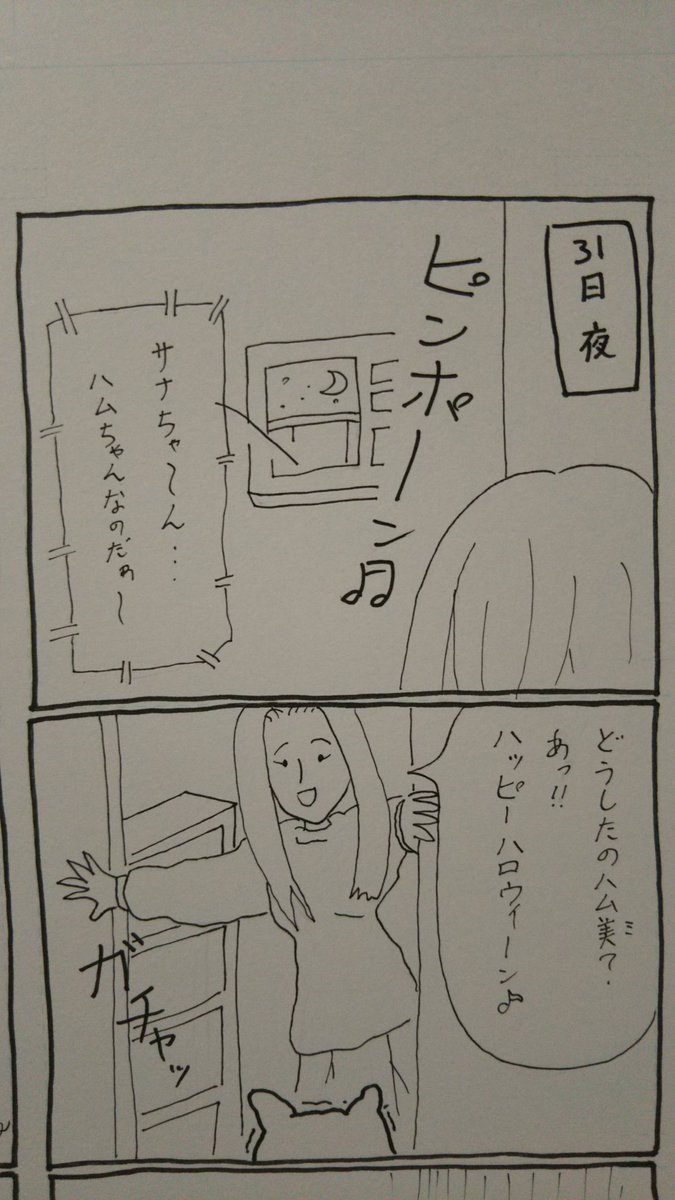 31日 夜
ピンポーン♫
サナちゃ〜ん・・・
ハムちゃんなのだぁ〜
どうしたのハム美?
ミ
あっ!!
ハッピーハロウィーン♪
ガチャッ